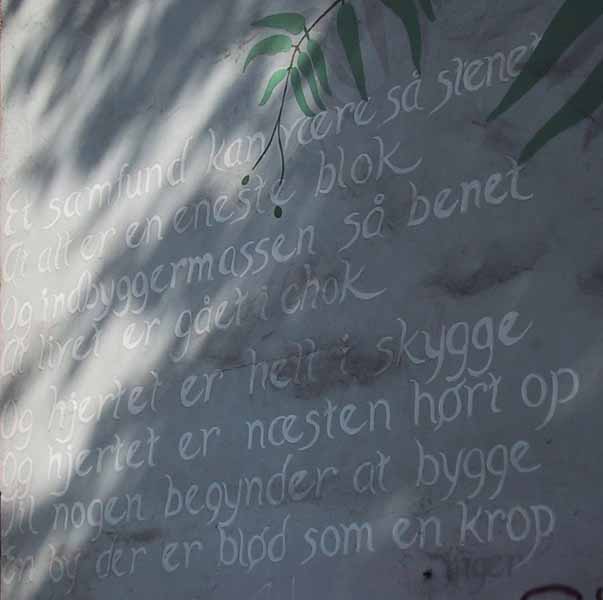 Et samfund kan være så stenet
At alt er en eneste blok
Og indbyggermassen så benet
At livet er gået i chok
Og hjertet er helt i skygge
Og hjertet er næsten hørt op
Til nogen begynder at bygge
En by der er blød som en krop